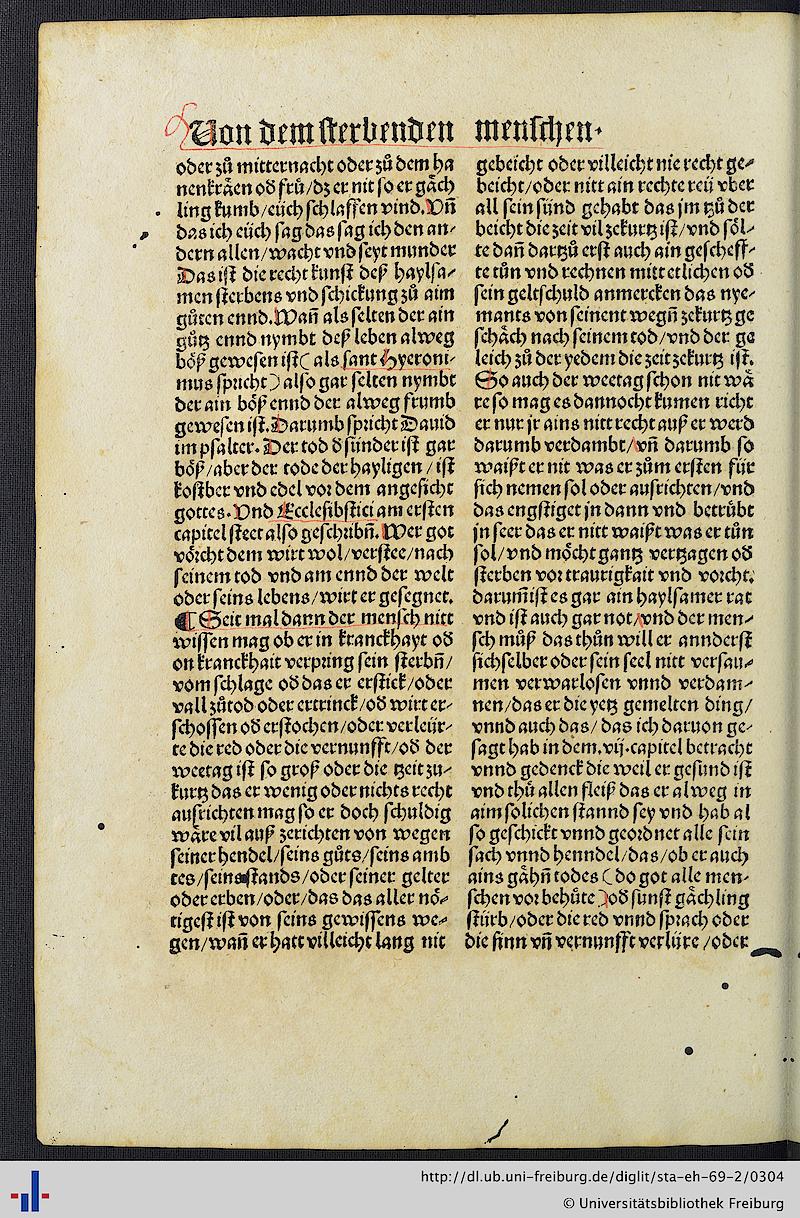 Von dem sterbenden menschen.
oder zů mitternacht oder zů dem ha
nenkräen oď frů/dz er nit so er gäch
ling kumb/eüch schlaffen vind. Vñ
das ich eüch sag das sag ich den an-
dern allen/wacht vnd seyt munder
Das ist die recht kunst deß haylsa-
men sterbens vnd schickung zů aim
gůten ennd. Wañ als selten der ain
gůtz ennd nymbt deß leben alweg
böß gewesen ist (als sant Hyeroni-
mus spricht) also gar selten nymbt
der ain böß ennd der alweg frumb
gewesen ist. Darumb spricht Dauid
im psalter. Der tod ď sünder ist gar
böß/aber der tode der hayligen/ist
kostber vnd edel vor dem angesicht
gottes. Vnd Ecclesibstici am ersten
capitel steet also geschribñ. Wer got
vörcht dem wirt wol/verstee/nach
seinem tod vnd am ennd der welt
oder seins lebens/wirt er gesegnet.
¶ Seit mal dann der mensch nitt
wissen mag ob er in kranckhayt oď
on kranckhait verpring sein sterbñ/
vom schlage oď das er erstick/oder
vall zůtod oder ertrinck/oď wirt er-
schossen oď erstochen/oder verleür-
te die red oder die vernunfft/oď der
weetag ist so groß oder die tzeit zu-
kurtz das er wenig oder nichts recht
ausrichten mag so er doch schuldig
wäre vil auß zerichten von wegen
seiner hendel/seins gůts/seins amb
tes/seins stands/oder seiner gelter
oder erben/oder/das das aller nö-
tigest ist von seins gewissens we-
gen/wañ er hatt villeicht lang nit
gebeicht oder villeicht nie recht ge-
beicht/oder nitt ain rechte reü vber
all sein sünd gehabt das jm tzů der
beicht die zeit vil zekurtz ist/vnd söl-
te dañ dartzů erst auch ain gescheff-
te tůn vnd rechnen mitt etlichen oď
sein geltschuld anmercken das nye-
mants von seinent wegñ zekurtz ge
schäch nach seinem tod/vnd der ge
leich zů der yedem die zeit zekurtz ist.
So auch der weetag schon nit wä
re so mag es dannocht kumen richt
er nur jr ains nitt recht auß er werd
darumb verdambt/vñ darumb so
waißt er nit was er zům ersten für
sich nemen sol oder ausrichten/vnd
das engstiget jn dann vnd betrübt
jn seer das er nitt waißt was er tůn
sol/vnd möcht gantz vertzagen oď
sterben vor traurigkait vnd vorcht.
darum̃ ist es gar ain haylsamer rat
vnd ist auch gar not/vnd der men-
sch můß das thůn will er annderst
sichselber oder sein seel nitt versau-
men verwarlosen vnnd verdam-
nen/das er die yetz gemelten ding/
vnnd auch das/das ich daruon ge-
sagt hab in dem .vij. capitel betracht
vnnd gedenck die weil er gesund ist
vnd thů allen fleiß das er alweg in
aim solichen stannd sey vnd hab al
so geschickt vnnd geordnet alle sein
sach vnnd henndel/das/ob er auch
ains gähñ todes (do got alle men-
schen vor behůte) oď sunst gächling
stürb/oder die red vnnd sprach oder
die sinn vñ vernunfft verlüre/oder
http://dl.ub.uni-freiburg.de/diglit/sta-eh-69-2/0304
© Universitätsbibliothek Freiburg